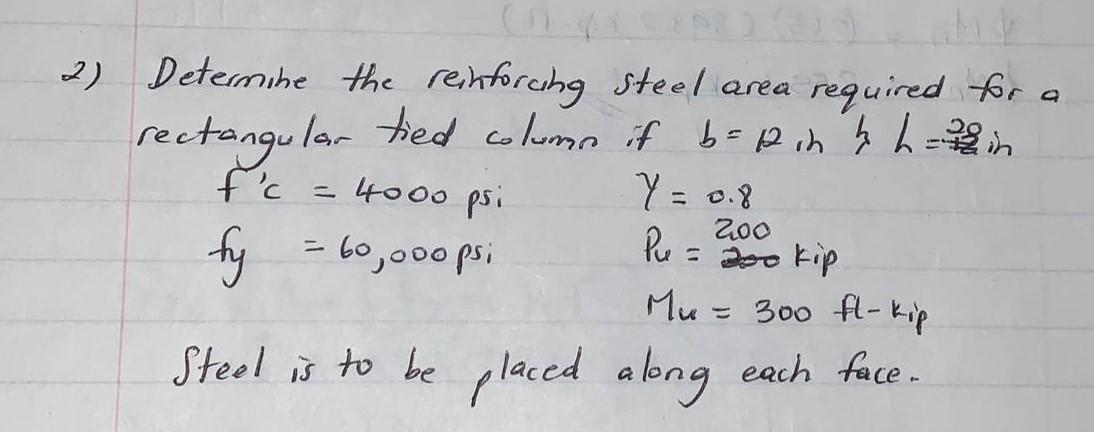 2) Determine the reinforcing steel area required for a
rectangular tied column if b = 12 in & h = in
f'c = 4000 psi γ = 0.8
fy = 60,000 psi Pu = 200 kip
Mu = 300 ft-kip
Steel is to be placed along each face.